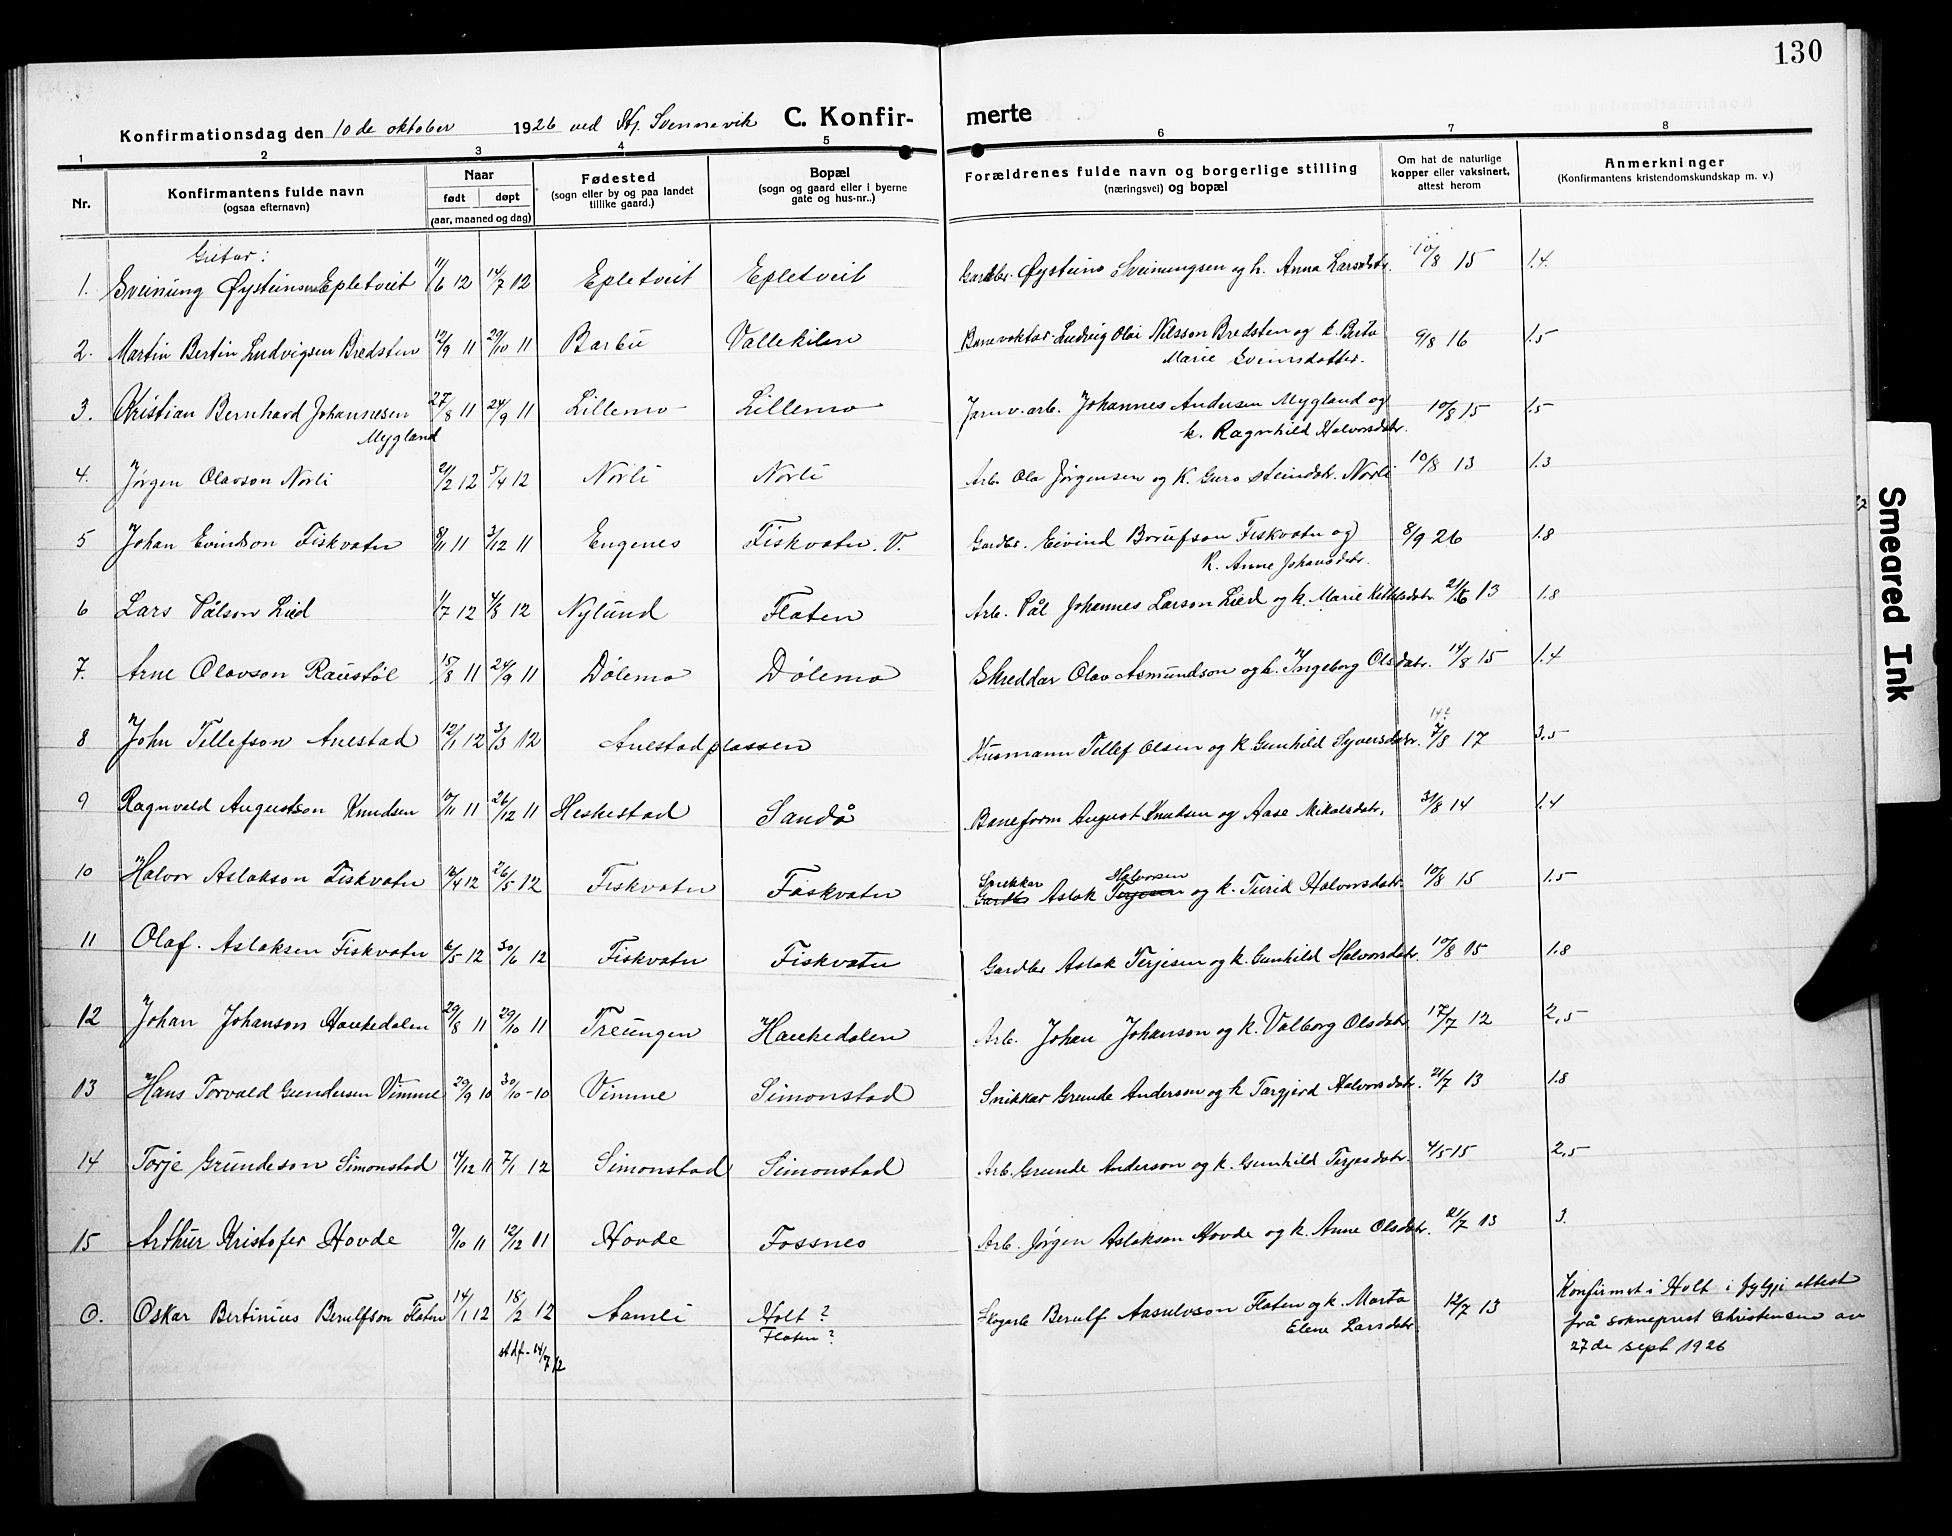 130
Konfirmationsdag den 10 de oktober 1926 ved Stj. Svennevik C. Konfir- merte
1 2 3 4 5 6 7 8
Nr. Konfirmantens fulde navn (ogsaa efternavn) Naar født døpt (aar, maaned og dag) Fødested (sogn eller by og paa landet tillike gaard.) Bopæl (sogn og gaard eller i byerne gate og hus-nr..) Forældrenes fulde navn og borgerlige stilling (næringsvei) og bopæl Om hat de naturlige kopper eller vaksinert, attest herom Anmerkninger (Konfirmantens kristendomskundskap m. v.)
Gutar:
1. Sveinung Øysteinson Epletveit 11/6 12 14/7 12 Epletveit Epletveit Gardbr. Øysteino Sveinungsen og h. Anna Larsdtr. 10/8 15 1.4
2. Martin Bertin Ludvigsen Bredsten 12/9 11 29/10 11 Barbu Vallekilen Banevoktar Ludvig Olai Nilsson Bredsten og k. Berta
Marie Sveinsdotter. 9/8 16 1.5
3. Kristian Bernhard Johannesen 27/8 11 24/9 11 Lillemo Lillemo Jarnv. arb. Johannes Andersen Mygland og 10/8 15 1.5
Mygland k. Ragnhild Halvorsdatr.
4. Jørgen Olavson Norli 21/2 12 5/4 12 Norli Norli Arb. Ola Jørgensen og K. Guro Steindtr. Norli 10/8 13 1.3
5 Johan Evindson Fiskvatn 8/11 11 3/12 11 Engenes Fiskvatn. V. Gardbr. Eivind Borufson Fiskvatn og 8/9 26 1.8
K. Anne Johansdtr.
6 Lars Pålson Lied 1/7 12 4/8 12 Nylund Flaten Arb. Pål Johannes Larson Lied og k. Marie Kittilsdtr. 21/6 13 1.8
7. Arne Olavson Raustøl 15/8 11 24/9 11 Dølemo Dølemo Skreddar Olav Asmundson og k. Ingeborg Olsdatr. 14/8 15 1.4
8 John Tellefson Anestad 12/1 12 3/3 12 Anestadplassen Husmann Tellef Olsen og k Gunhild Syversdatr. 7/8 17 3.5
9 Ragnvald Augustson Knudsen 10/11 11 26/12 11 Heskestad Sandå Baneform August Knutsen og Aase Mikalsdatr. 31/8 14 1.4
10 Halvor Aslakson Fiskvatn 16/4 12 26/5 12 Fiskvatn Fiskvatn Snekkar Gardbr Aslak Terjesen Halvorsen og k. Turid Halvorsdatr. 10/8 15 1.5
11 Olaf. Aslaksen Fiskvatn 6/5 12 30/6 12 Fiskvatn Fiskvatn Gardbr Aslak Terjesen og k. Gunhild Halvorsdatr. 10/8 15 1.8
12 Johan Johanson Haukedalen 29/8 11 29/10 11 Treungen Haukedalen Arb. Johan Johanson og k. Valborg Olsdatr. 17/7 12 2,5
13 Hans Torvald Gundersen Vimme 29/9 10 30/10 - 10 Vimme Simonstad Snikkar Grunde Anderson og k Targjerd Halvorsdatr. 21/7 13 1.8
14 Torje Grundeson Simonstad 14/12 11 7/1 12 Simonstad Simonstad Arb. Grunde Anderson og k. Gunhild Terjesdatr. 4/5 - 15 2,5
15 Arthur Kristofer Hovde 9/10 11 12/12 11 Hovde Fossnes Arb. Jørgen Aslakson Hovde og k. Anne Olsdatr. 21/7 13 3.
0. Oskar Bertinius Berulfson Flaten 14/1 12 18/2 12 Aamli Holt? Skogarb Berulf Aasulvson Flaten og k. Marta 12/7 13 Konfirmert i Holt i fylgje attest
stdf. 14/7 12 Flaten? Elene Larsdatr. frå sokneprest Christensen av
27 de sept 1926
Smeared Ink